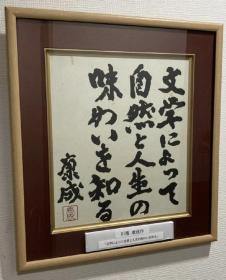 文学によって
自然と人生の
味わいを知る
康成
川端 康成作